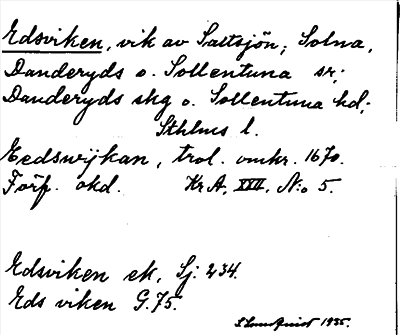 Edsviken, vik av Saltsjön; Solna,
Danderyds o. Sollentuna sr;
Danderyds skg o. Sollentuna hd;
Sthlms l.
Eedzwijkan, trol. omkr. 1670.
Förf. okd. Kr A, XXII, N:o 5.
Edsviken ek. Sj. 234.
Eds viken G. 75.
S Lundqvist 1935.